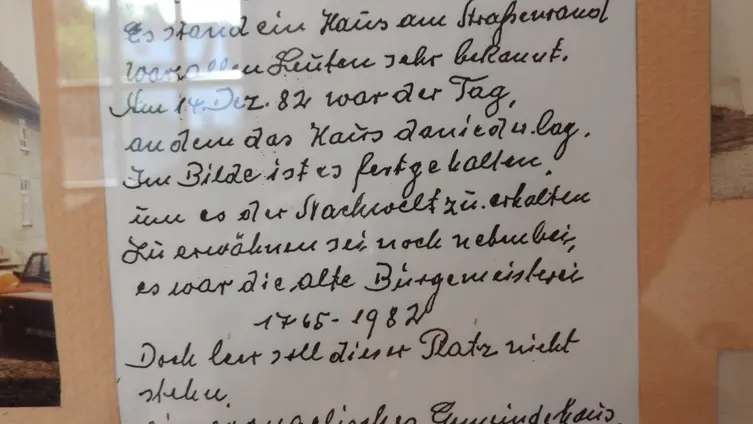 Es stand ein Haus am Straßenrand
war allen Leuten sehr bekannt.
Am 14. Dez. 82 war der Tag,
an dem das Haus daniederlag.
Im Bilde ist es festgehalten,
um es der Nachwelt zu erhalten
Zu erwähnen sei noch nebenbei,
es war die alte Bürgemeisterei
1765 - 1982
Doch leer soll dieser Platz nicht
stehn.
evangelisches Gemeindehaus